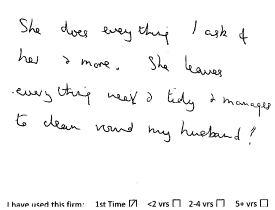 She does everything I ask of
her & more. She leaves
everything neat & tidy & manages
to clean round my husband!
I have used this firm: 1st Time ☑ <2 yrs ☐ 2-4 yrs ☐ 5+ yrs ☐